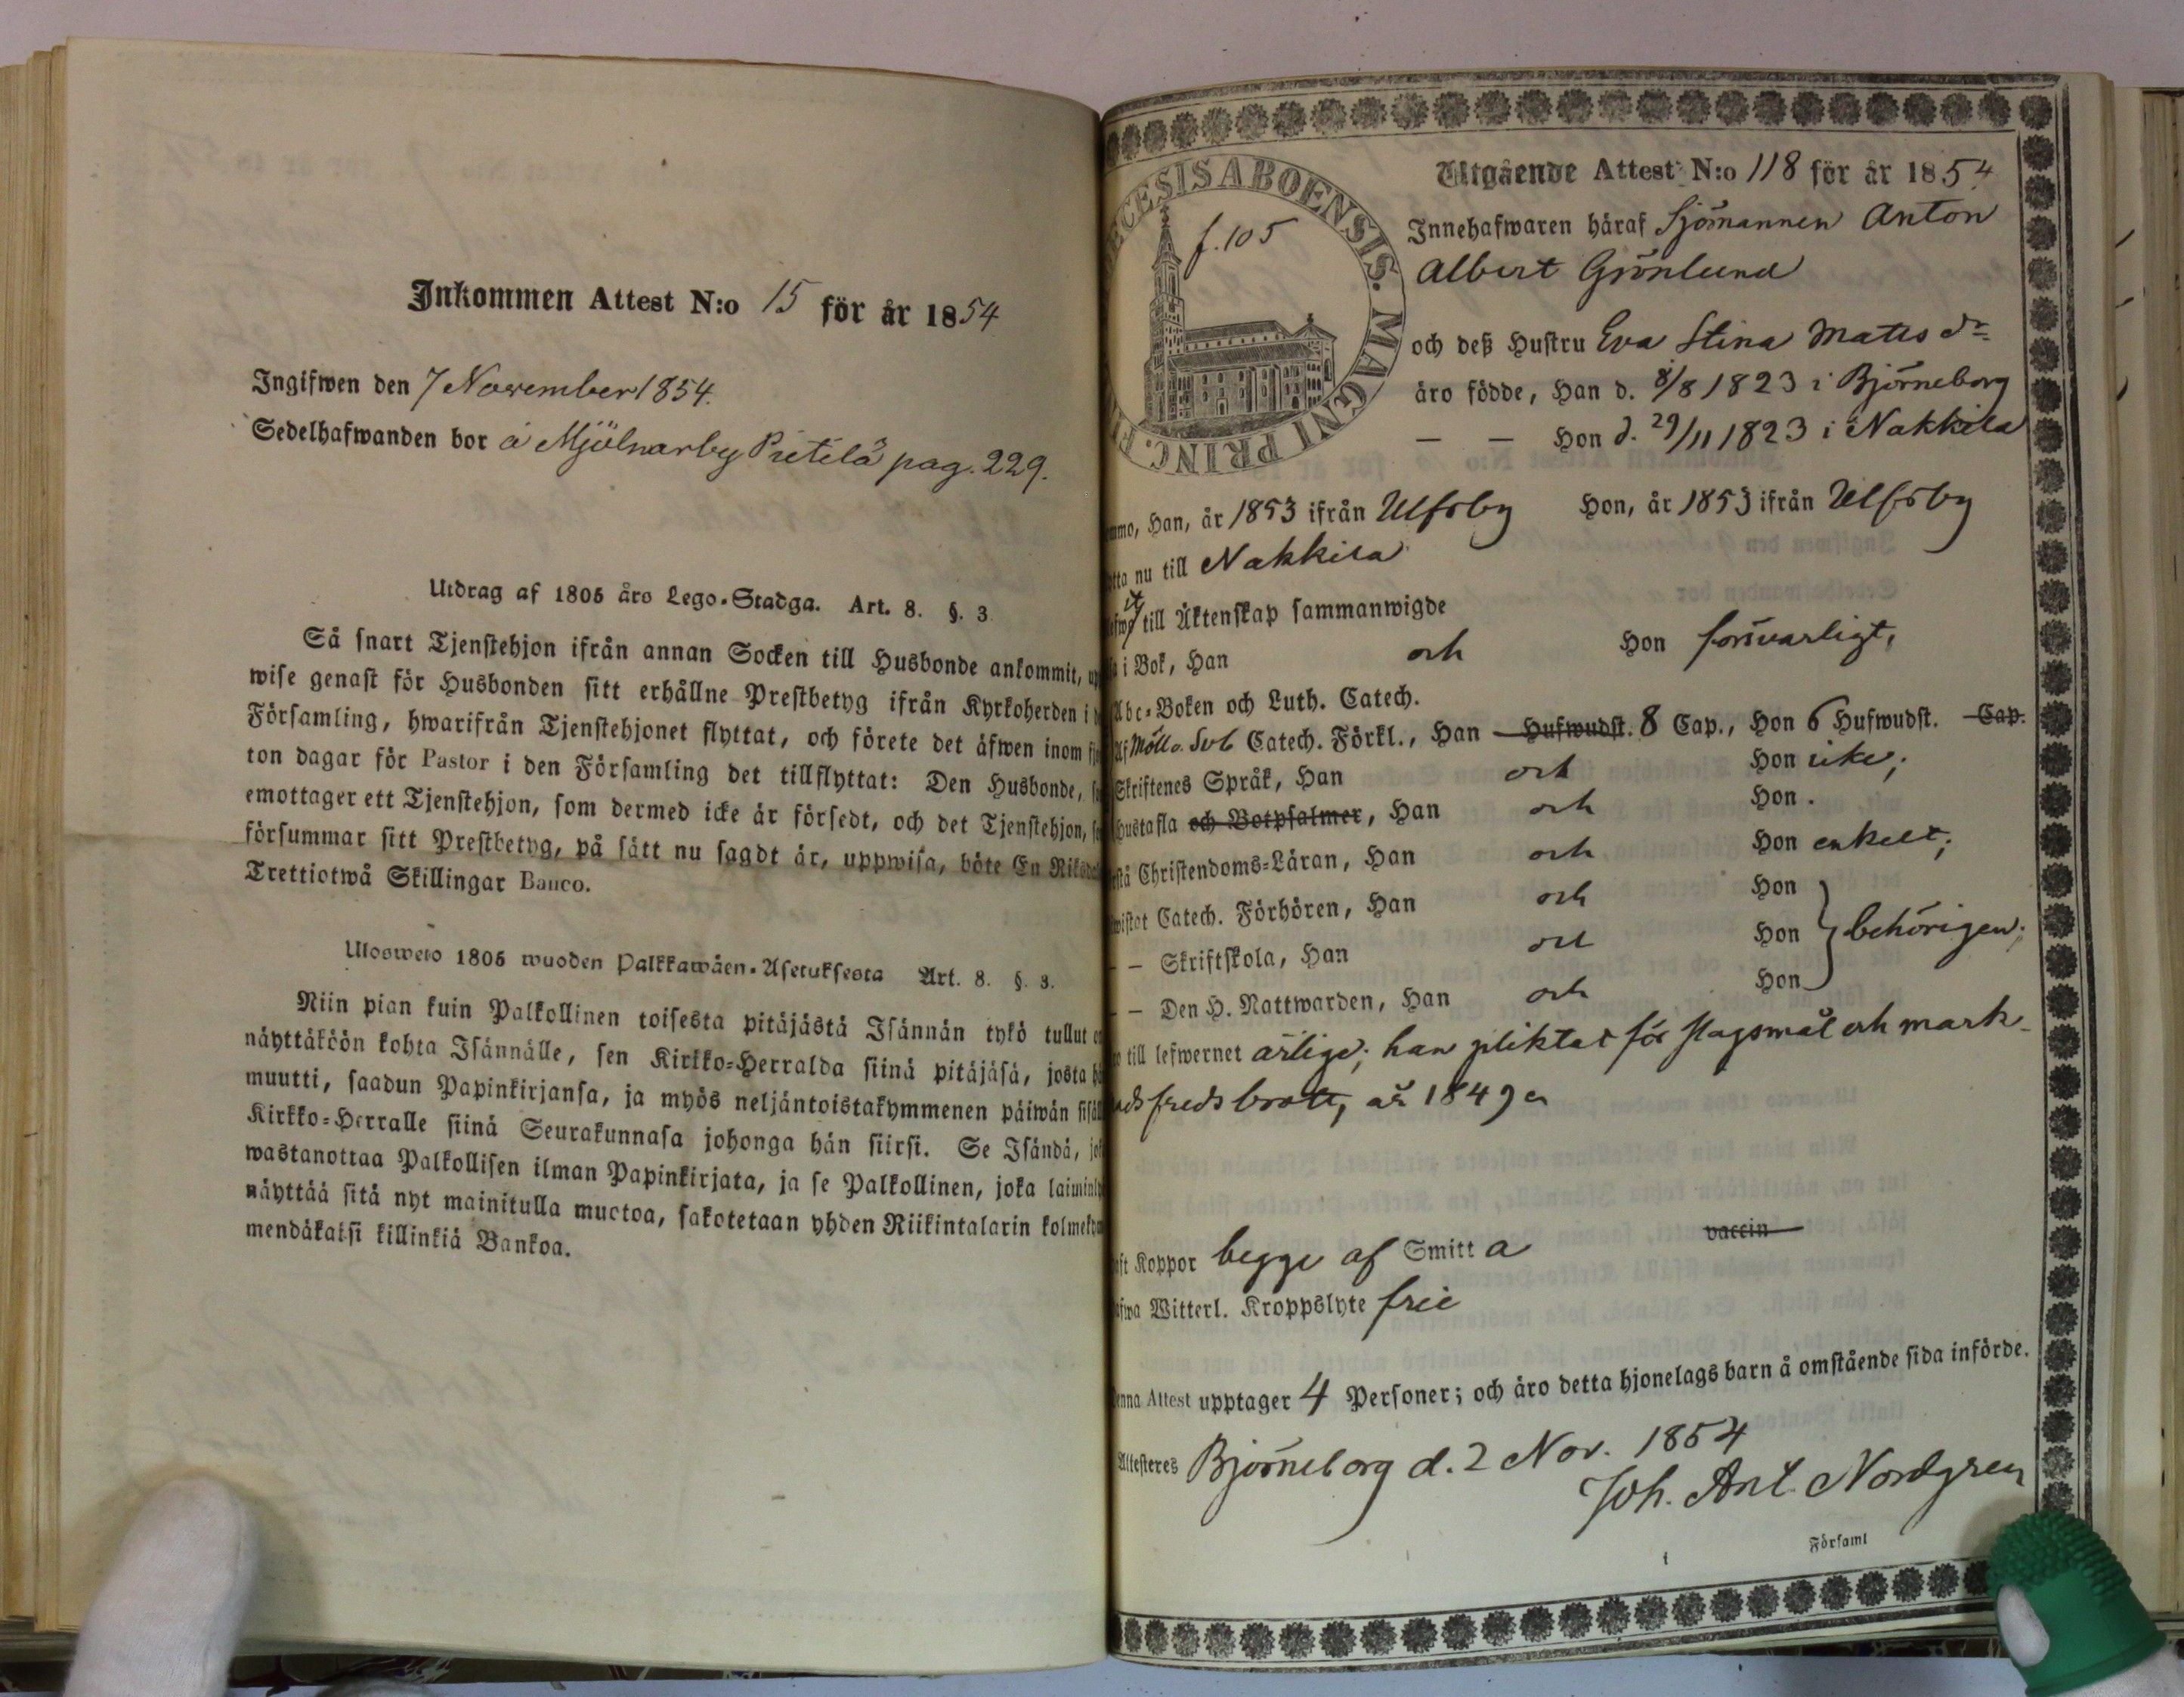 Inkommen Attest N:o 15 för år 1854
Ingifwen den 7 November 1854.
Sedelhafwanden bor å Mjölnarby Pietilä pag. 229.
Utdrag af 1805 års Lego-Stadga. Art. 8. §. 3
Så snart Tjenstehjon ifrån annan Socken till Husbonde ankommit,
wise genast för Husbonden sitt erhållne Prestbetyg ifrån Kyrkoherden i
Församling, hwarifrån Tjenstehjonet flyttat, och förete det äfwen inom
ton dagar för Pastor i den Församling det tillflyttat: Den Husbonde,
emottager ett Tjenstehjon, som dermed icke är försedt, och det Tjenstehjon,
försummar sitt Prestbetyg, på sätt nu sagdt är, uppwisa, böte En
Trettiotwå Skillingar Banco.
Ulosweto 1805 wuoden Palkkawäen-Asetuksesta Art. 8. §. 3.
Niin pian kuin Palkollinen toisesta pitäjästä Isännän tykö tullut
näyttäköön kohta Isännälle, sen Kirkko-Herralda siinä pitäjäsä, josta
muutti, saadun Papinkirjansa, ja myös neljäntoistakymmenen päiwän
Kirkko-Herralle siinä Seurakunnasa johonga hän siirsi. Se Isändä,
wastanottaa Palkollisen ilman Papinkirjata, ja se Palkollinen, joka
näyttää sitä nyt mainitulla muotoa, sakotetaan yhden Riikintalarin
mendäkaksi killinkiä Bankoa.
ECESIS ABOENSIS. MAGNI PRINC.
f. 105
Utgående Attest N:o 118 för år 1854
Innehafwaren häraf Sjömannen Anton
Albert Grönlund
och deß Hustru Eva Stina Mattsdr
äro födde, Han d. 8/8 1823 i Björneborg
— — Hon d. 29/11 1823 i Nakkila
Han, år 1853 ifrån Ulfsby Hon, år 1853 ifrån Ulfsby
nu till Nakkila
till Äktenskap sammanwigde
i Bok, Han och Hon försvarligt,
Abc-Boken och Luth. Catech.
Af Möll o. Sveb Catech. Förkl., Han Hufwudst. 8 Cap., Hon 6 Hufwudst. Cap.
Skriftenes Språk, Han och Hon icke;
Hustafla och Botpsalmer, Han och Hon .
Christendoms-Läran, Han och Hon enkelt;
Catech. Förhören, Han och Hon
— Skriftskola, Han och Hon } behörigen;
— Den H. Nattwarden, Han och Hon
till lefwernet ärlige; han pliktat för slagsmål och mark-
nadsfredsbrott, år 1849
vaccin
Koppor begge af Smitta
Witterl. Kroppslyte frie
Attest upptager 4 Personer; och äro detta hjonelags barn å omstående sida införde.
Attesteres Björneborg d. 2 Nov. 1854
Joh. Ant. Nordgren
Församl